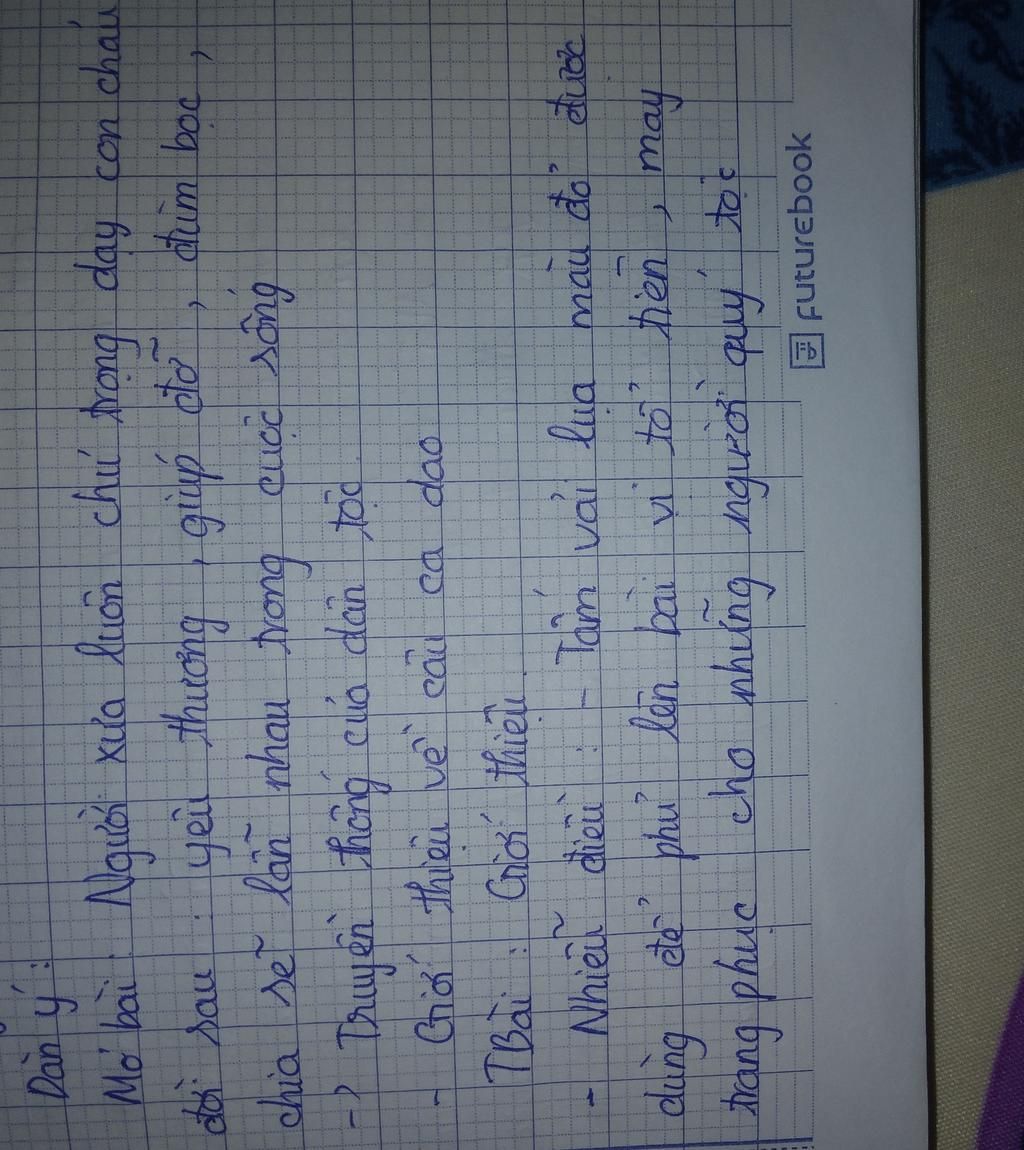 Dàn ý :
Mở bài : Người xưa luôn chú trọng dạy con cháu
đời sau : yêu thương , giúp đỡ , đùm bọc ,
chia sẽ lẫn nhau trong cuộc sống
-> Truyền thống của dân tộc
- Giới thiệu về câu ca dao
TBài : Giới thiệu
- Nhiễu điều : - Tấm vải lụa màu đỏ được
dùng để phủ lên bài vị tổ tiên , may
trang phục cho những người quý tộc
futurebook